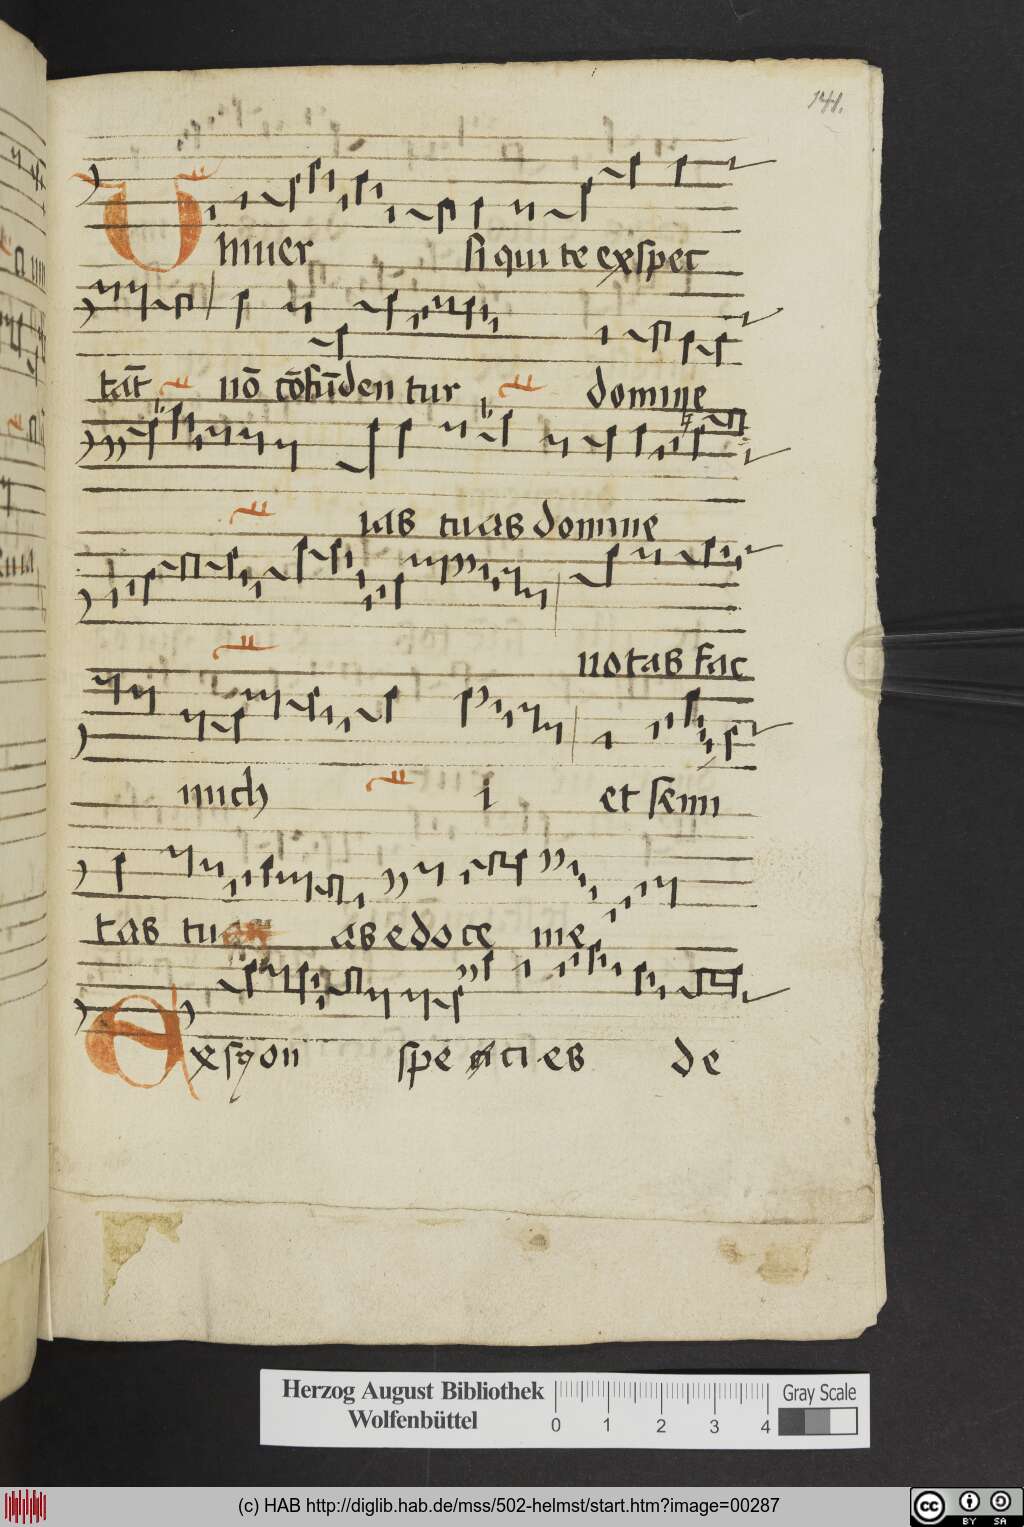 141.
Vniuer si qui te exspec
tāt nō cōfūden tur domine
ias tuas domine
notas fac
mich i et semi
tas tuas as edoce me
Ex syon spe ci es de
Herzog August Bibliothek
Wolfenbüttel
0 1 2 3 4
Gray Scale
(c) HAB http://diglib.hab.de/mss/502-helmst/start.htm?image=00287
cc BY SA